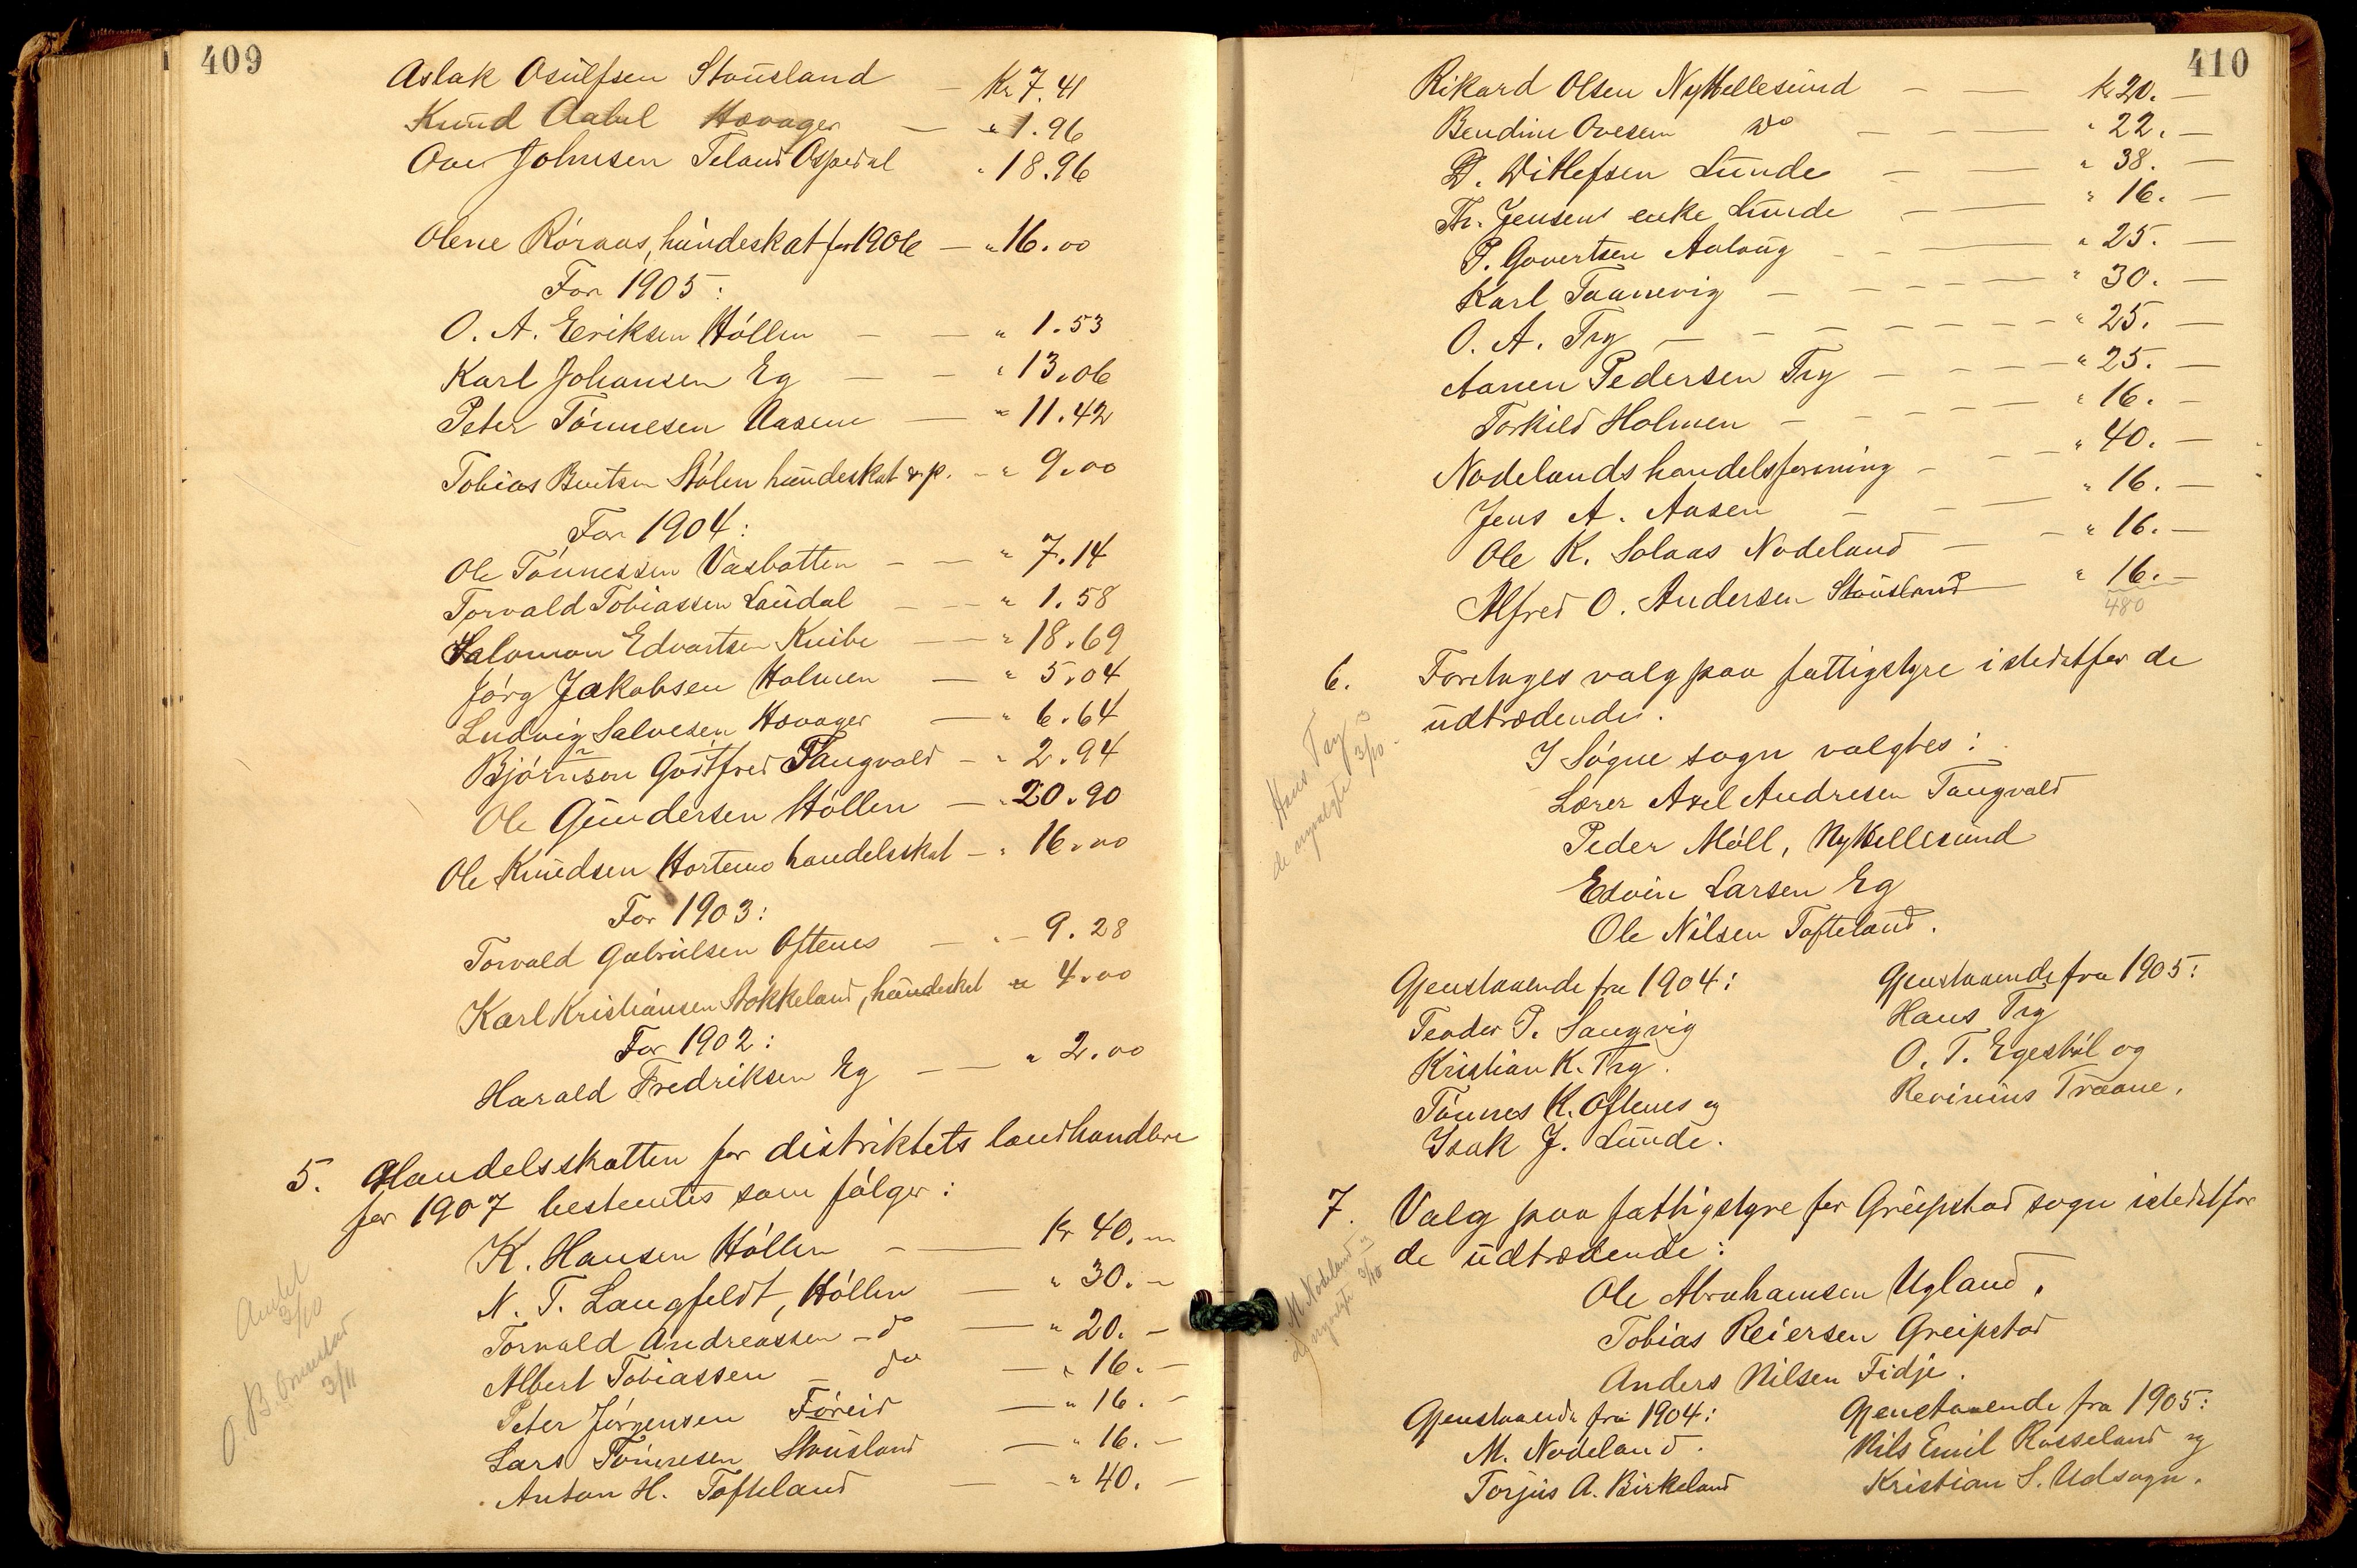 409
Aslak Osulfsen Stausland — Kr 7.41
Knud Aabel Hovager — " 1.96
Ove Johnsen Teland Ospedal " 18.96
Olene Róraas, hundeskat for 1906 — " 16.00
For 1905:
O. A. Eeriksen Hóllen — — " 1.53
Karl Johansen Eg — — " 13.06
Peter Tónnesen Aasene — " 11.42
Tobias Bentsen Stólen hundeskat & p. — " 9.00
For 1904:
Ole Tónnessen Vasbotten — — " 7.14
Torvald Tobiassen Laudal — — " 1.58
Salomon Edvartsen Knibe — — " 18.69
Jórg Jakobsen Holmen — " 5.04
Ludvig Salvesen Hovager — " 6.64
Bjórnson Godtfred Tangvald — " 2.94
Ole Gundersen Hóllen — " 20.90
Ole Knudsen Hortemo handelsskat — " 16.00
For 1903:
Torvald Gabrielsen Oftenes — " — 9.28
Karl Kristiansen Stokkeland, hundeskat " 4.00
For 1902:
Harald Fredriksen Eg — — " 2.00
5. Handelsskatten for distriktets landhandlere
for 1907 bestemtes som fólger:
K. Hansen Hóllen — — Kr 40. —
N. T. Langfeldt, Hóllen — " 30. —
Torvald Andreassen — do — " 20. —
Albert Tobiassen — do — " 16. —
Peter Jórgensen Fóreid — " 16. —
Lars Tónnesen Stausland — " 16. —
Anton H. Tofteland — — " 40. —
3/10
O. B.
3/11
410
Rikard Olsen NyHellesund — — Kr 20. —
Bendine Ovesen Do — — — " 22. —
D. Ditlefsen Lunde — — " 38. —
Th. Jensens enke Lunde — — " 16. —
P. Govertsen Aalaug — — — " 25. —
Karl Taanevig — — — — — " 30. —
O. A. Try — — — — — — — " 25. —
Aanen Pedersen Try — — — — " 25. —
Torkild Holmen — — — — — " 16. —
Nodelands handelsforening — — — " 40. —
Jens A. Aasen — — — " 16. —
Ole K. Solaas Nodeland — — " 16. —
Alfred O. Andersen Stausland — " 16. —
480
6. Foretages valg paa fattigstyre istedetfor de
udtrædende.
I Sógne sogn valgtes:
Lærer Axel Andresen Tangvald
Peder Móll, NyHellesund
Edvin Larsen Eg
Ole Nilsen Tofteland.
Hans Try og
de nyvalgte 3/10.
Gjenstaaende fra 1904:
Teodor P. Langvig
Kristian K. Try.
Tónnes K. Oftenes og
Isak J. Lunde.
Gjenstaaende fra 1905:
Hans Try
O. T. Egestól og
Revinius Traane.
7. Valg paa fattigstyre for Greipstad sogn istedetfor
de udtrædende:
Ole Abrahamsen Ugland,
Tobias Reiersen Greipstad
Anders Nilsen Fidje.
M Nodeland og
nyvalgte 3/10
Gjenstaaende fra 1904:
M. Nodeland.
Torjus A. Birkeland
Gjenstaaende fra 1905:
Nils Emil Rosseland og
Kristian S. Udsogn.